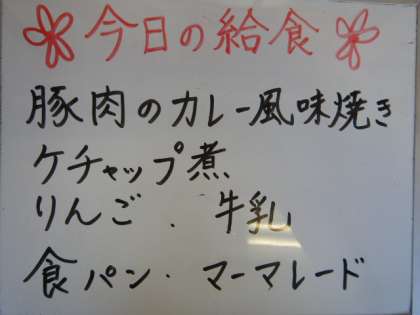 今日の給食
豚肉のカレー風味焼き
ケチャップ煮
りんご . 牛乳
食パン . マーマレード